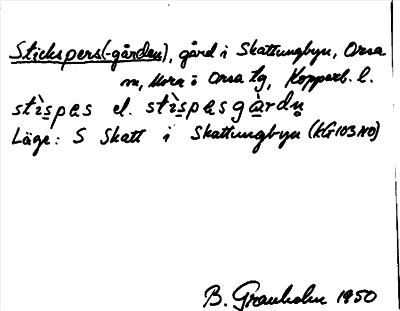 Stickspers(-gården), gård i Skattungbyn, Orsa
m, Mora o Orsa tg, Kopparb. l.
stìspas el. stìspasgàrdn̥
Läge: S Skatt i Skattungbyn (KG 103 NO)
B. Granholm 1950